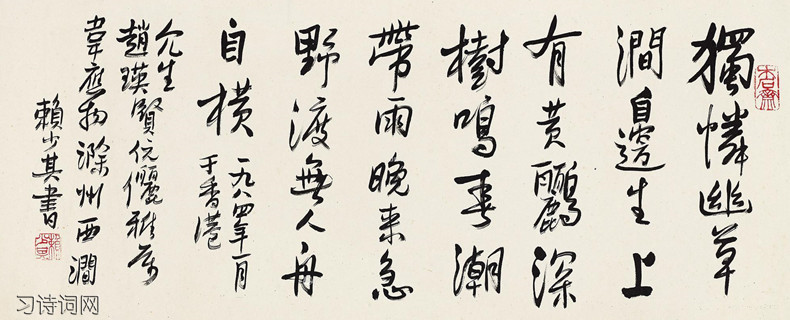 獨憐幽草
澗邊生上
有黃鸝深
樹鳴春潮
帶雨晚来急
野渡無人舟
自橫 一九八四年一月
于香港
允生
趙瑛賢伉儷雅屬
韋應物滁州西澗
賴少其書
习诗词网